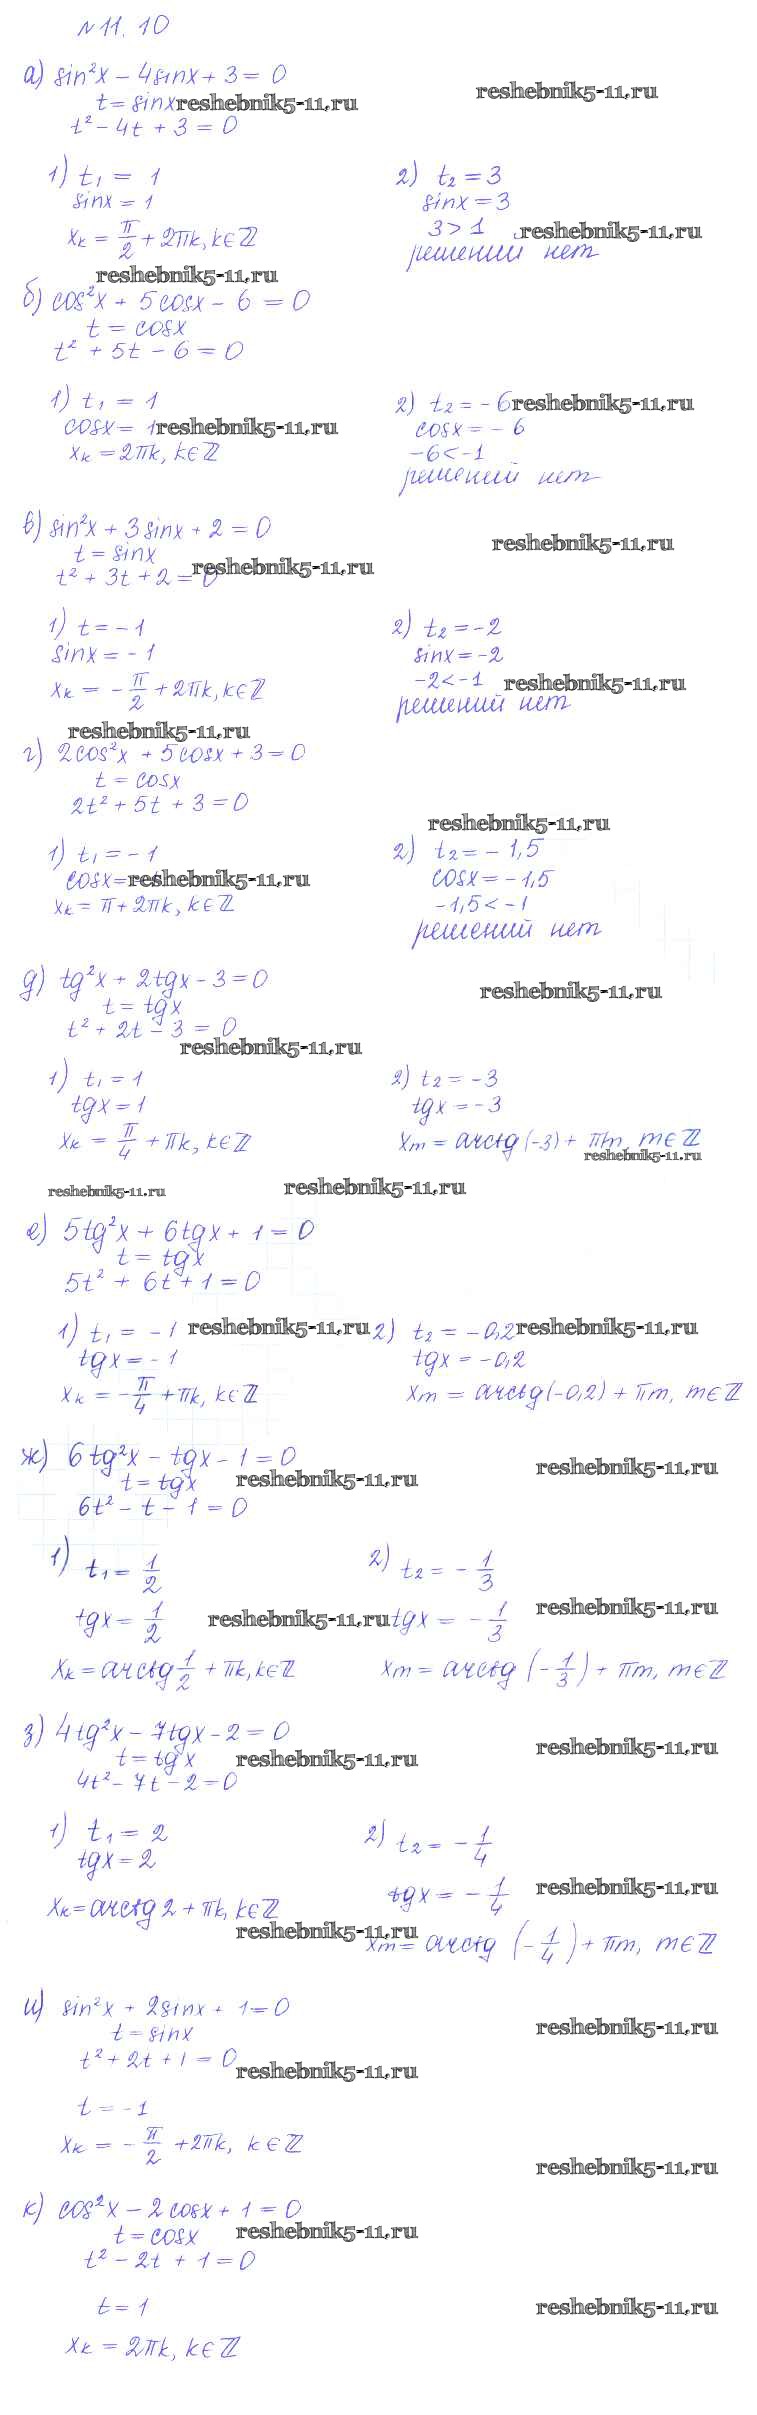 № 11.10
а) sin²x − 4sinx + 3 = 0
t = sinx reshebnik5-11.ru reshebnik5-11.ru
t² − 4t + 3 = 0
1) t₁ = 1
sinx = 1
xₖ = π/2 + 2πk, k∈ℤ
2) t₂ = 3
sinx = 3
3 > 1 reshebnik5-11.ru
решений нет
reshebnik5-11.ru
б) cos²x + 5cosx − 6 = 0
t = cosx
t² + 5t − 6 = 0
1) t₁ = 1
cosx = 1 reshebnik5-11.ru
xₖ = 2πk, k∈ℤ
2) t₂ = −6 reshebnik5-11.ru
cosx = −6
−6 < −1
решений нет
в) sin²x + 3sinx + 2 = 0
reshebnik5-11.ru
t = sinx
reshebnik5-11.ru
t² + 3t + 2 = 0
1) t = −1
sinx = −1
xₖ = −π/2 + 2πk, k∈ℤ
2) t₂ = −2
sinx = −2
−2 < −1 reshebnik5-11.ru
решений нет
reshebnik5-11.ru
г) 2cos²x + 5cosx + 3 = 0
t = cosx
2t² + 5t + 3 = 0
reshebnik5-11.ru
1) t₁ = −1
cosx = reshebnik5-11.ru
xₖ = π + 2πk, k∈ℤ
2) t₂ = −1,5
cosx = −1,5
−1,5 < −1
решений нет
д) tg²x + 2tgx − 3 = 0
reshebnik5-11.ru
t = tgx
t² + 2t − 3 = 0
reshebnik5-11.ru
1) t₁ = 1
tgx = 1
xₖ = π/4 + πk, k∈ℤ
2) t₂ = −3
tgx = −3
xₘ = arctg(−3) + πm, m∈ℤ
reshebnik5-11.ru
reshebnik5-11.ru reshebnik5-11.ru
е) 5tg²x + 6tgx + 1 = 0
t = tgx
5t² + 6t + 1 = 0
1) t₁ = −1 reshebnik5-11.ru
tgx = −1
xₖ = −π/4 + πk, k∈ℤ
2) t₂ = −0,2 reshebnik5-11.ru
tgx = −0,2
xₘ = arctg(−0,2) + πm, m∈ℤ
ж) 6tg²x − tgx − 1 = 0
reshebnik5-11.ru
t = tgx reshebnik5-11.ru
6t² − t − 1 = 0
1) t₁ = 1/2
tgx = 1/2 reshebnik5-11.ru
xₖ = arctg 1/2 + πk, k∈ℤ
2) t₂ = −1/3
tgx = −1/3 reshebnik5-11.ru
xₘ = arctg (−1/3) + πm, m∈ℤ
з) 4tg²x − 7tgx − 2 = 0
reshebnik5-11.ru
t = tgx reshebnik5-11.ru
4t² − 7t − 2 = 0
1) t₁ = 2
tgx = 2
xₖ = arctg 2 + πk, k∈ℤ
reshebnik5-11.ru
2) t₂ = −1/4
tgx = −1/4 reshebnik5-11.ru
xₘ = arctg (−1/4) + πm, m∈ℤ
и) sin²x + 2sinx + 1 = 0
t = sinx reshebnik5-11.ru
t² + 2t + 1 = 0
reshebnik5-11.ru
t = −1
xₖ = −π/2 + 2πk, k∈ℤ
reshebnik5-11.ru
к) cos²x − 2cosx + 1 = 0
t = cosx reshebnik5-11.ru
t² − 2t + 1 = 0
t = 1 reshebnik5-11.ru
xₖ = 2πk, k∈ℤ